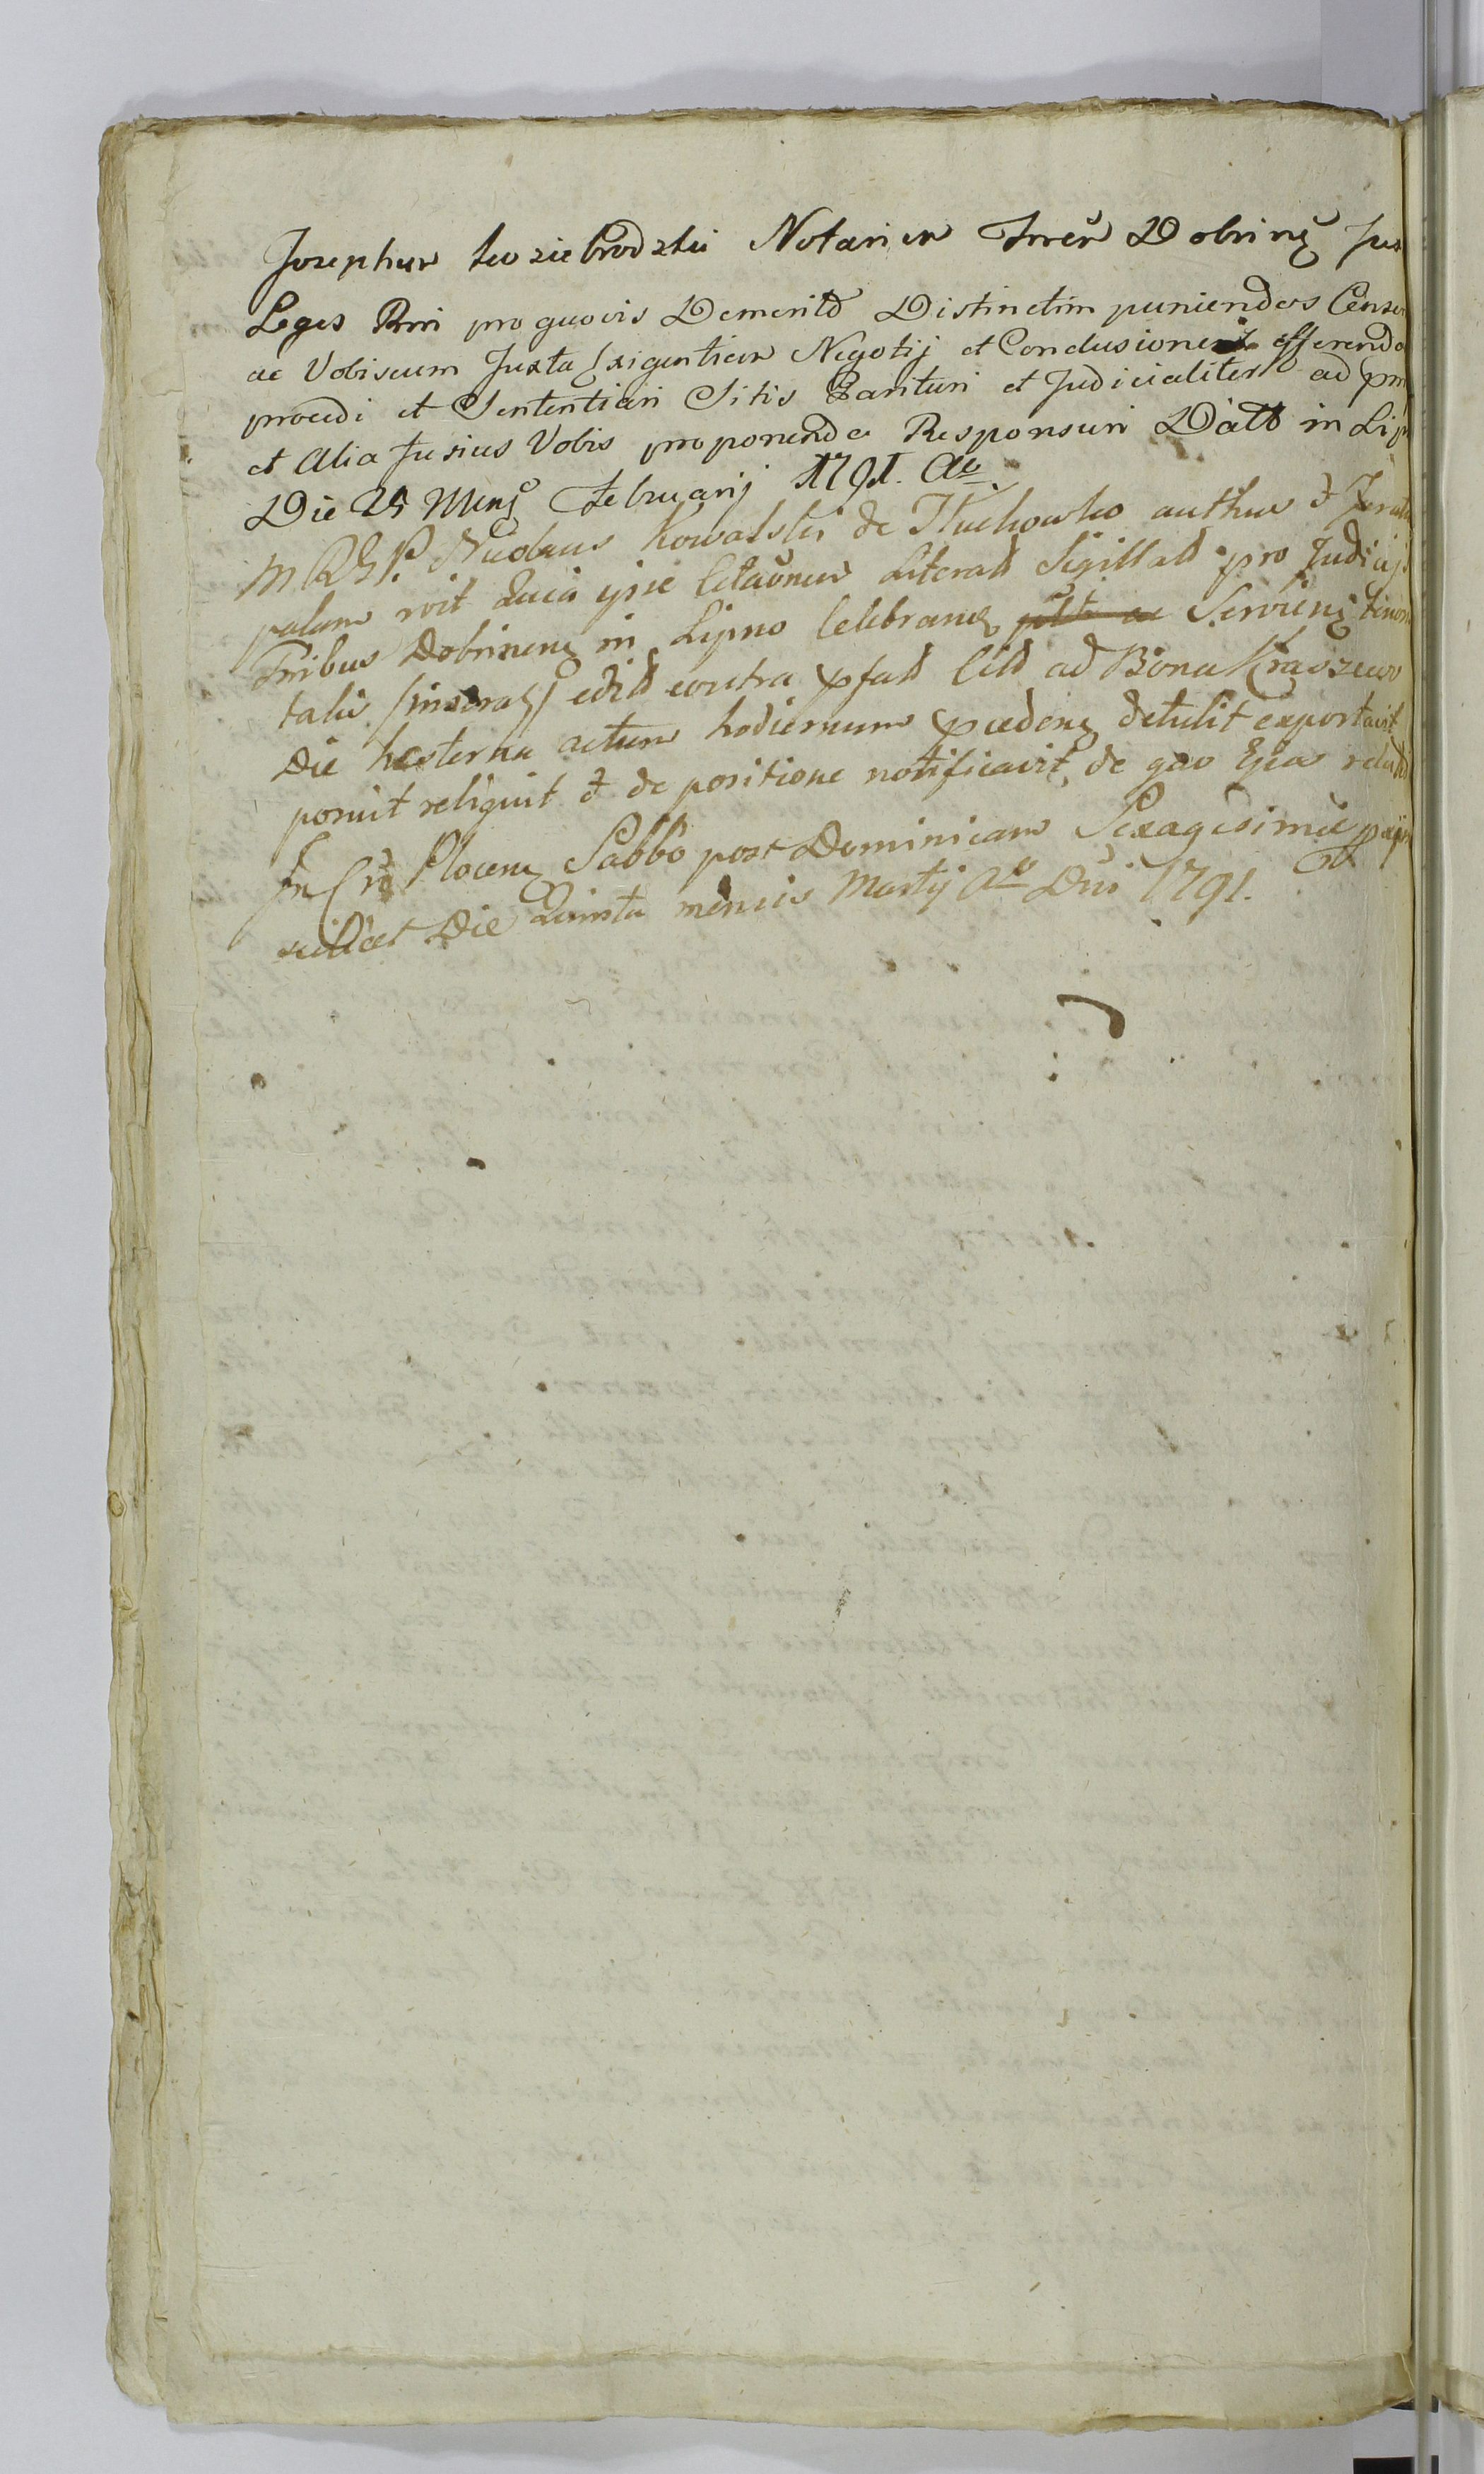 Josephum Koziebrodzki Notarium Trrēm Dobrinȩ Jux
Leges Rni pro quovis Demerito Distinctim puniendos Censer
ac Vobiscum Juxta Exigentiam Negotij et Conclusiones efferendo
procedi et Sententiari Sitis parituri et Judicialiter ad prm
et Alia fusius Vobis proponenda Responsuri Datt in Lip
Die 25 Mens Februarij 1791. Ao.
M RGP. Nicolaus Kowalski de Kuchowko authus & Jurat
palam rvit Quia ipse Citaōnem Literatt Sigillatt pro Judicijs
Trribus Dobrinenȩ in Lipno Celebranȩ Servienȩ tenor
talis /inserat/ edit contra pfatt Citt ad Bona Kraszewo
Die hesterna actum hodiernum præcedenȩ detulit exportavit
posuit reliquit & de positione notificavit, de quo Ejus relatio
In Crō Plocenȩ Sabbo post Dominicam Sexagesimæ pxijm
scilicet Die Quinta mensis Martij Ao Dni 1791.